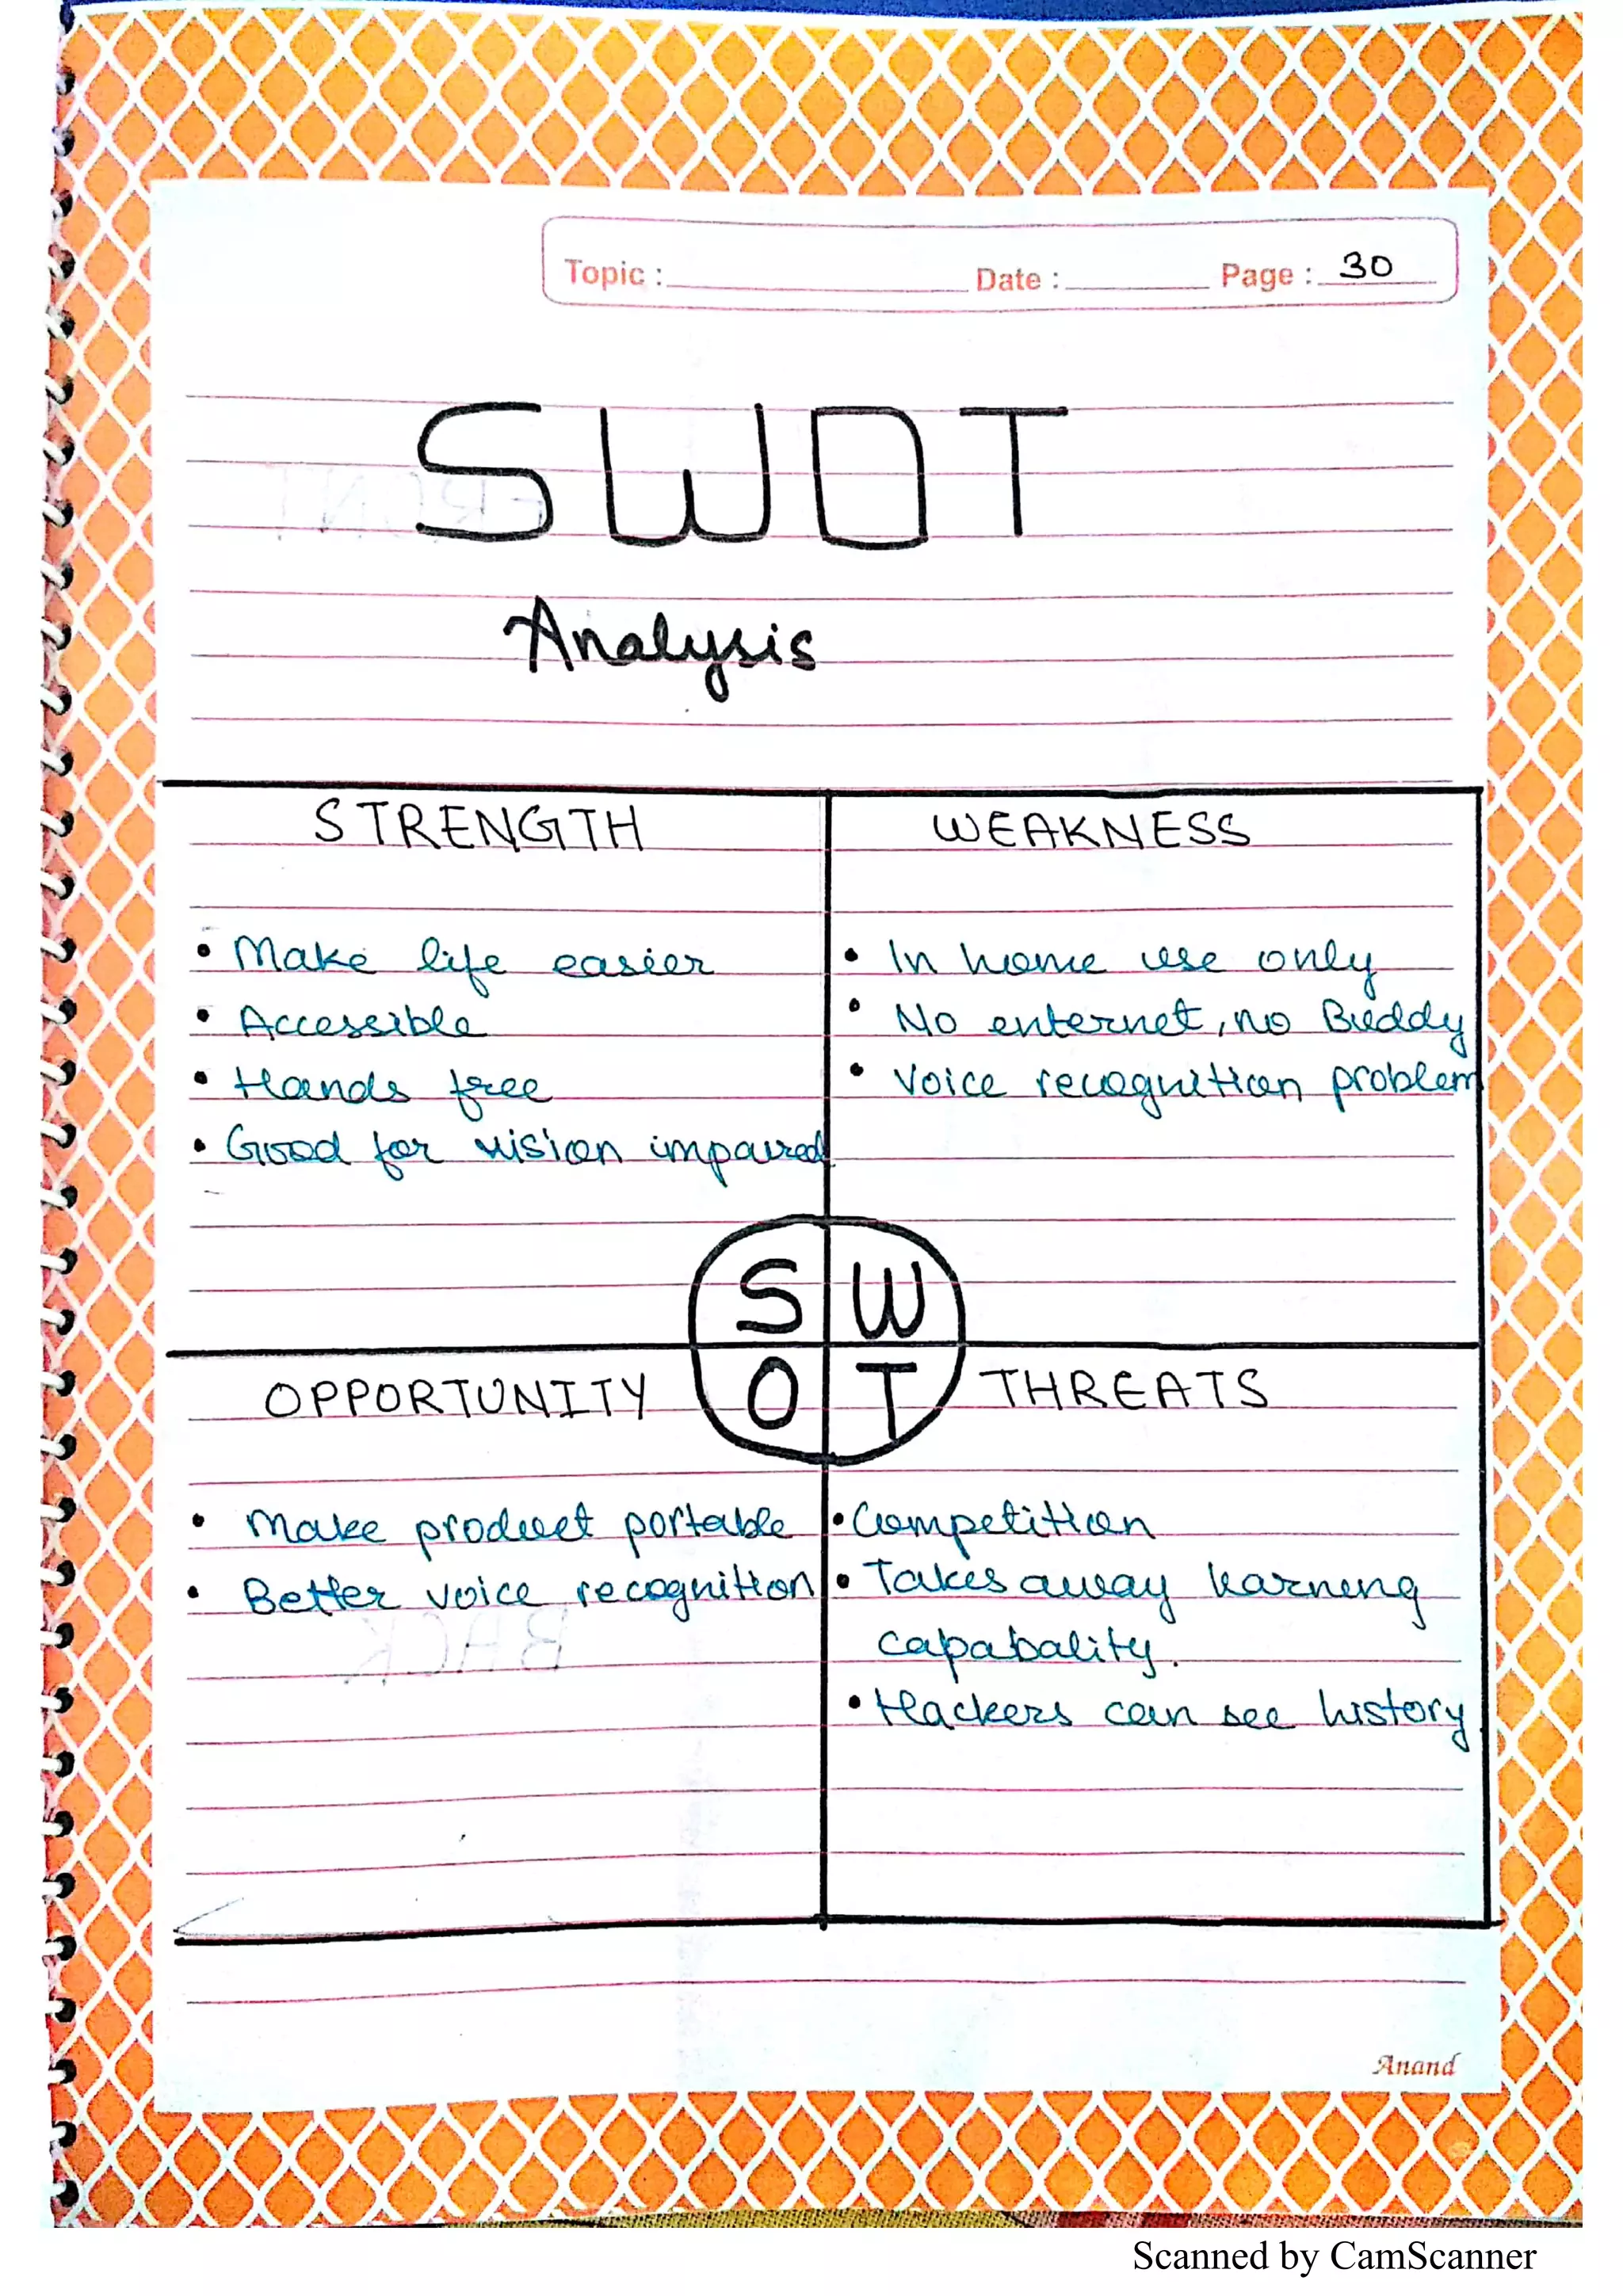 Topic : Date : Page : 30
SWOT
Analysis
STRENGTH
• Make life easier
• Accessible
• Hands free
• Good for vision impaired
WEAKNESS
• In home use only
• No enternet, no Buddy
• Voice recognition problem
S W
O T
OPPORTUNITY
• Make product portable
• Better voice recognition
THREATS
• Competition
• Takes away learning
capabality.
• Hackers can see history
Anand
Scanned by CamScanner